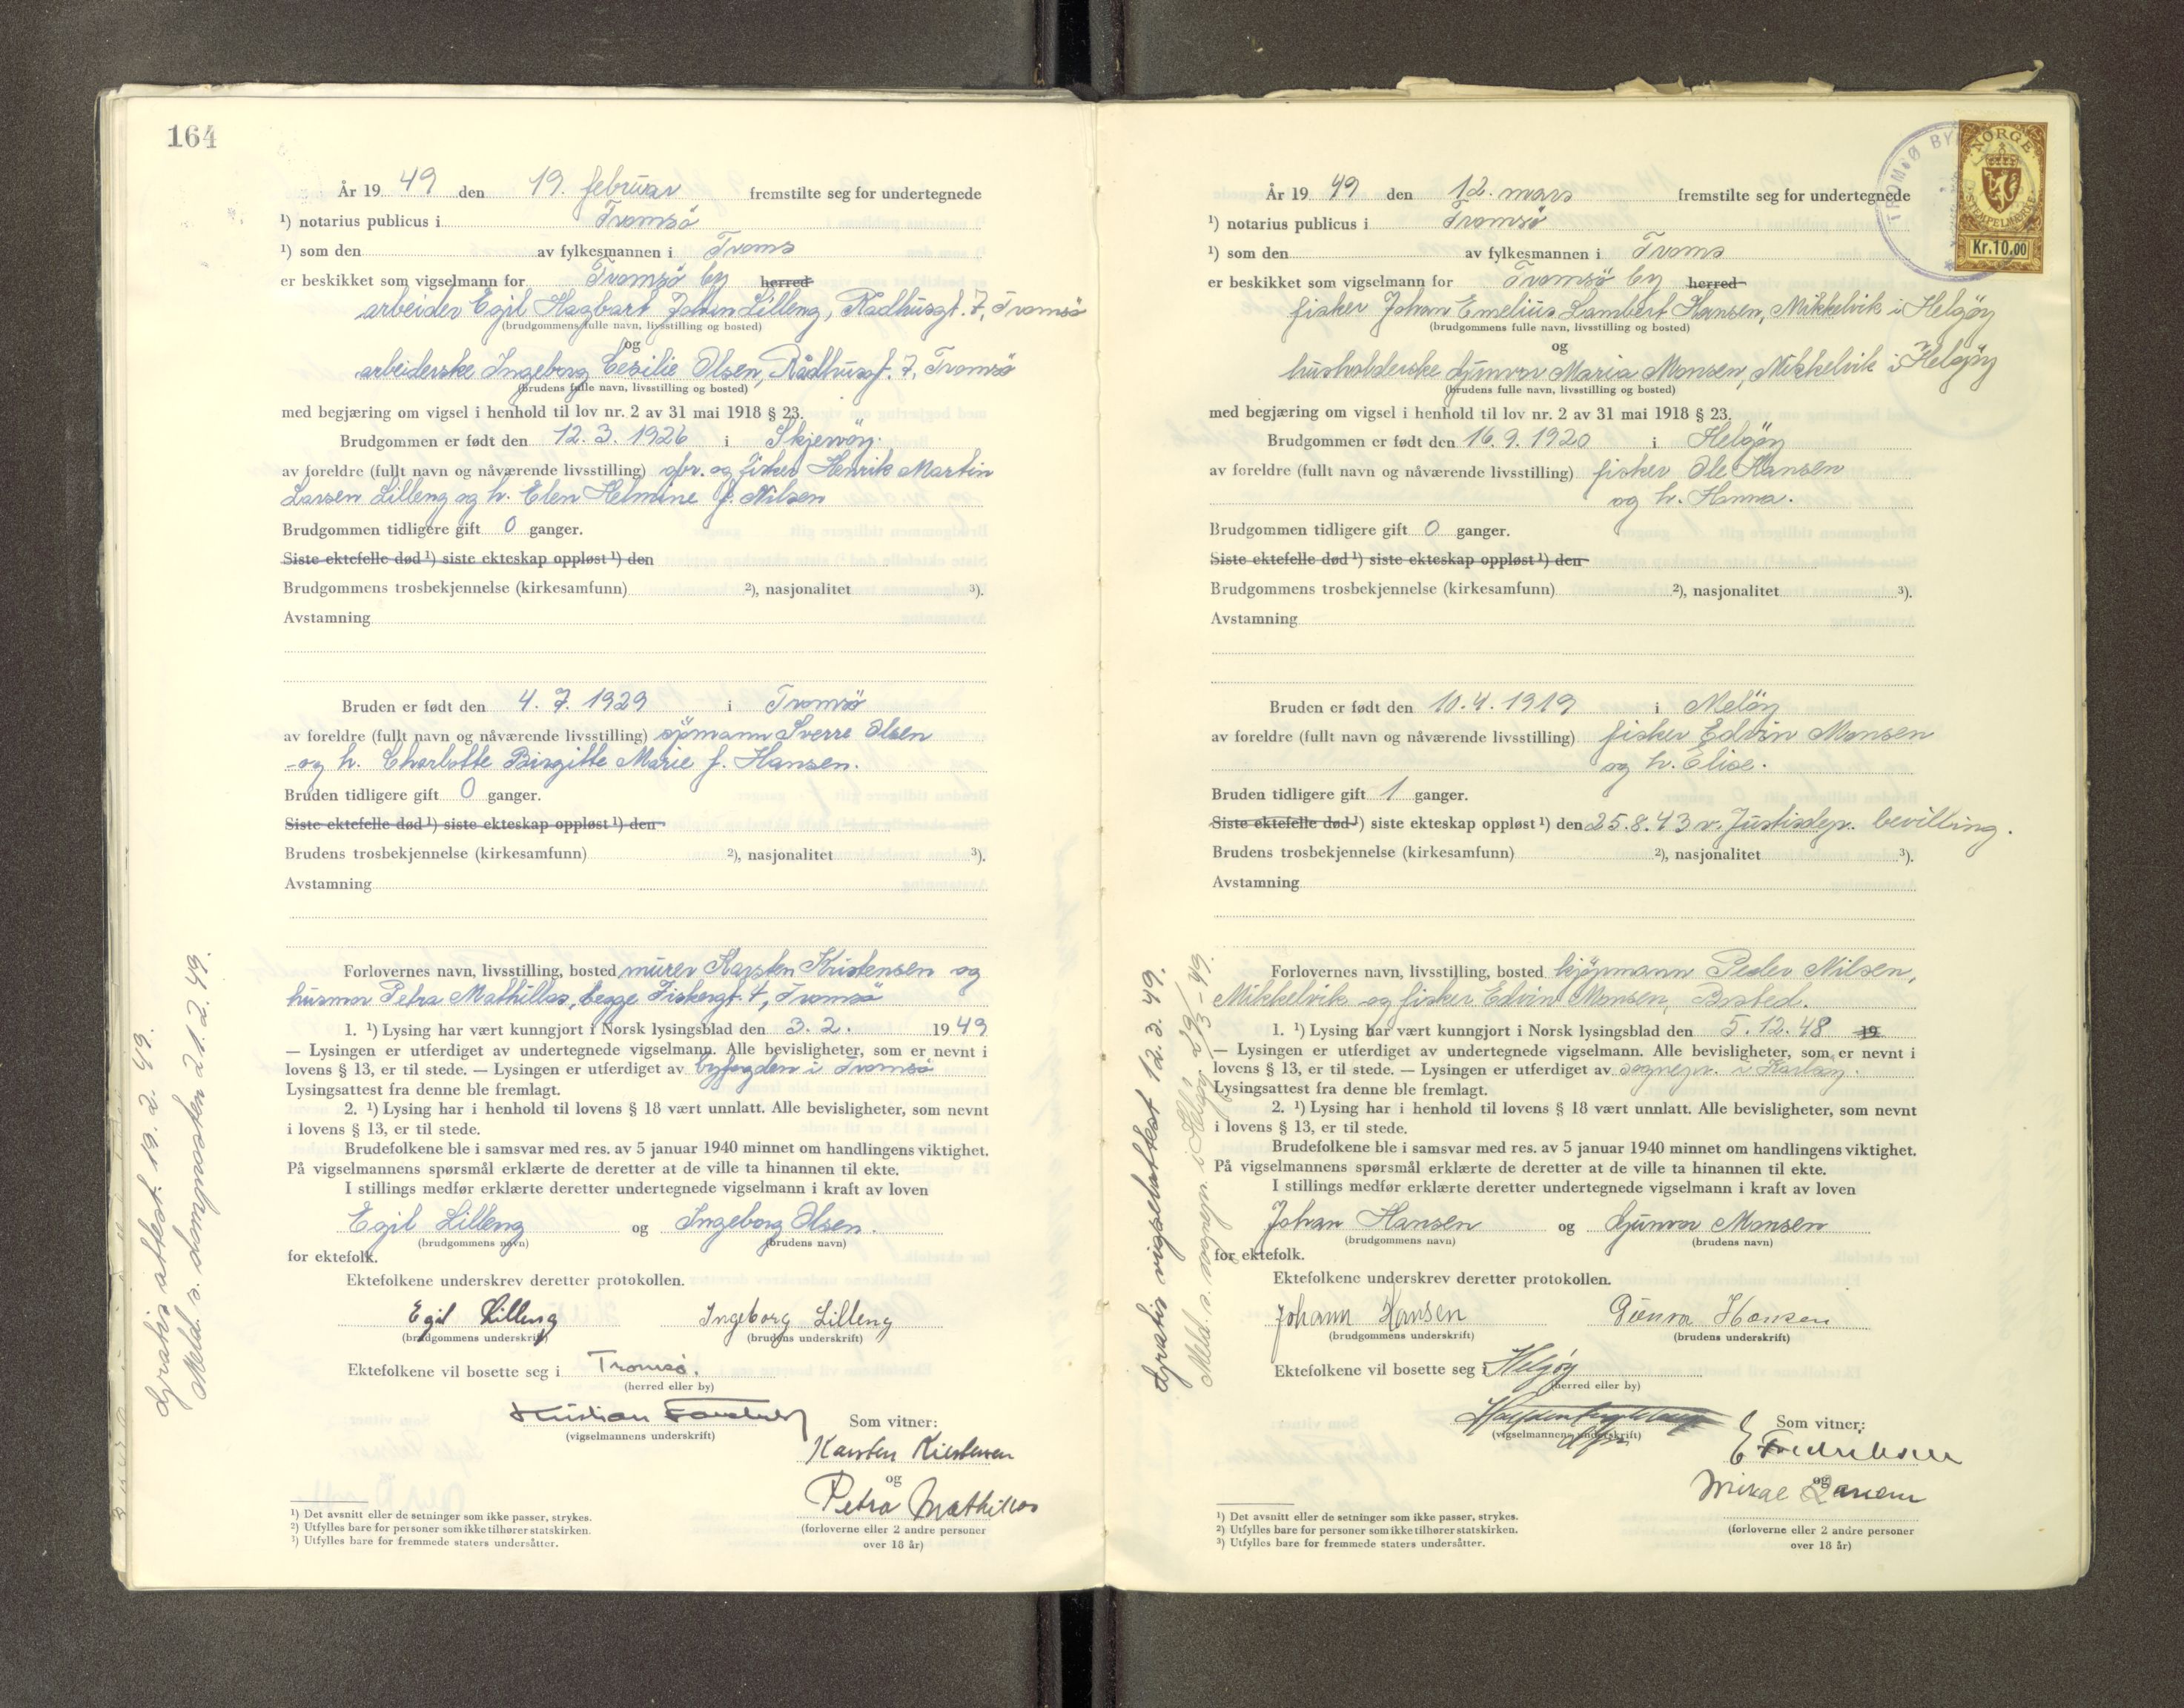 164
År 19 49 den 19. februar fremstilte seg for undertegnede
¹) notarius publicus i Tromsö
¹) som den av fylkesmannen i Troms
er beskikket som vigselmann for Tromsö by herred
arbeider Egil Hagbart Johan Lilleng, Rådhusgt. 7, Tromsö
(brudgommens fulle navn, livsstilling og bosted)
og
arbeiderske Ingeborg Cesilie Olsen, Rådhusgt. 7, Tromsö
(brudens fulle navn, livsstilling og bosted)
med begjæring om vigsel i henhold til lov nr. 2 av 31 mai 1918 § 23.
Brudgommen er født den 12. 3. 1926 i Skjervöy.
av foreldre (fullt navn og nåværende livsstilling) gbr. og fisker Henrik Martin
Larsen Lilleng og h. Elen Helmine f. Nilsen
Brudgommen tidligere gift 0 ganger.
Siste ektefelle død ¹) siste ekteskap oppløst ¹) den
Brudgommens trosbekjennelse (kirkesamfunn) ²), nasjonalitet ³).
Avstamning
Bruden er født den 4. 7. 1929 i Tromsö
av foreldre (fullt navn og nåværende livsstilling) sjömann Sverre Olsen
og h. Charlotte Birgitte Marie f. Hansen.
Bruden tidligere gift 0 ganger.
Siste ektefelle død ¹) siste ekteskap oppløst ¹) den
Brudens trosbekjennelse (kirkesamfunn) ²), nasjonalitet ³).
Avstamning
Forlovernes navn, livsstilling, bosted murer Karsten Kristensen og
husmor Petra Mathillas, begge Fiskergt. 4, Tromsö
1. ¹) Lysing har vært kunngjort i Norsk lysingsblad den 3. 2. 19 49
— Lysingen er utferdiget av undertegnede vigselmann. Alle bevisligheter, som er nevnt i
lovens § 13, er til stede. — Lysingen er utferdiget av byfogden i Tromsö
Lysingsattest fra denne ble fremlagt.
2. ¹) Lysing har i henhold til lovens § 18 vært unnlatt. Alle bevisligheter, som nevnt
i lovens § 13, er til stede.
Brudefolkene ble i samsvar med res. av 5 januar 1940 minnet om handlingens viktighet.
På vigselmannens spørsmål erklærte de deretter at de ville ta hinannen til ekte.
I stillings medfør erklærte deretter undertegnede vigselmann i kraft av loven
Egil Lilleng og Ingeborg Olsen.
(brudgommens navn) (brudens navn)
for ektefolk.
Ektefolkene underskrev deretter protokollen.
Egil Lilleng Ingeborg Lilleng
(brudgommens underskrift) (brudens underskrift)
Ektefolkene vil bosette seg i Tromsø.
(herred eller by)
Kristian
(vigselmannens underskrift)
Som vitner:
Karsten Kristensen
og
Petra Mathillas
(forloverne eller 2 andre personer
over 18 år)
¹) Det avsnitt eller de setninger som ikke passer, strykes.
²) Utfylles bare for personer som ikke tilhører statskirken.
³) Utfylles bare for fremmede staters undersåtter.
Gratis attest. 19. 2. 49.
Meld. s. domprosten 21. 2. 49.
TROMSØ BY
NORGE
STEMPELMERKE
Kr. 10.00
År 19 49 den 12. mars fremstilte seg for undertegnede
¹) notarius publicus i Tromsö
¹) som den av fylkesmannen i Troms
er beskikket som vigselmann for Tromsö by herred
fisker Johan Emelius Lambert Hansen, Mikkelvik i Helgöy
(brudgommens fulle navn, livsstilling og bosted)
og
husholderske Gunvor Maria Monsen, Mikkelvik i Helgöy
(brudens fulle navn, livsstilling og bosted)
med begjæring om vigsel i henhold til lov nr. 2 av 31 mai 1918 § 23.
Brudgommen er født den 16. 9. 1920 i Helgöy
av foreldre (fullt navn og nåværende livsstilling) fisker Ole Hansen
og h. Hanna.
Brudgommen tidligere gift 0 ganger.
Siste ektefelle død ¹) siste ekteskap oppløst ¹) den
Brudgommens trosbekjennelse (kirkesamfunn) ²), nasjonalitet ³).
Avstamning
Bruden er født den 10. 4. 1919 i Melöy
av foreldre (fullt navn og nåværende livsstilling) fisker Edvin Monsen
og h. Elise.
Bruden tidligere gift 1 ganger.
Siste ektefelle død ¹) siste ekteskap oppløst ¹) den 25. 8. 43 v. Justisdep. bevilling.
Brudens trosbekjennelse (kirkesamfunn) ²), nasjonalitet ³).
Avstamning
Forlovernes navn, livsstilling, bosted kjöpmann Peder Nilsen,
Mikkelvik og fisker Edvin Monsen, Bsted.
1. ¹) Lysing har vært kunngjort i Norsk lysingsblad den 5. 12. 48 19
— Lysingen er utferdiget av undertegnede vigselmann. Alle bevisligheter, som er nevnt i
lovens § 13, er til stede. — Lysingen er utferdiget av sognepr. i Karlsöy.
Lysingsattest fra denne ble fremlagt.
2. ¹) Lysing har i henhold til lovens § 18 vært unnlatt. Alle bevisligheter, som nevnt
i lovens § 13, er til stede.
Brudefolkene ble i samsvar med res. av 5 januar 1940 minnet om handlingens viktighet.
På vigselmannens spørsmål erklærte de deretter at de ville ta hinannen til ekte.
I stillings medfør erklærte deretter undertegnede vigselmann i kraft av loven
Johan Hansen og Gunvor Monsen
(brudgommens navn) (brudens navn)
for ektefolk.
Ektefolkene underskrev deretter protokollen.
Johann Hansen Gunvor Hansen
(brudgommens underskrift) (brudens underskrift)
Ektefolkene vil bosette seg i Helgöy
(herred eller by)
(vigselmannens underskrift)
Som vitner:
E Fredriksen
og
Mikal Larsen
(forloverne eller 2 andre personer
over 18 år)
¹) Det avsnitt eller de setninger som ikke passer, strykes.
²) Utfylles bare for personer som ikke tilhører statskirken.
³) Utfylles bare for fremmede staters undersåtter.
Gratis vigselsattest 12. 3. 49.
Meld. s. sognepr. i Helgöy 29/3-49.